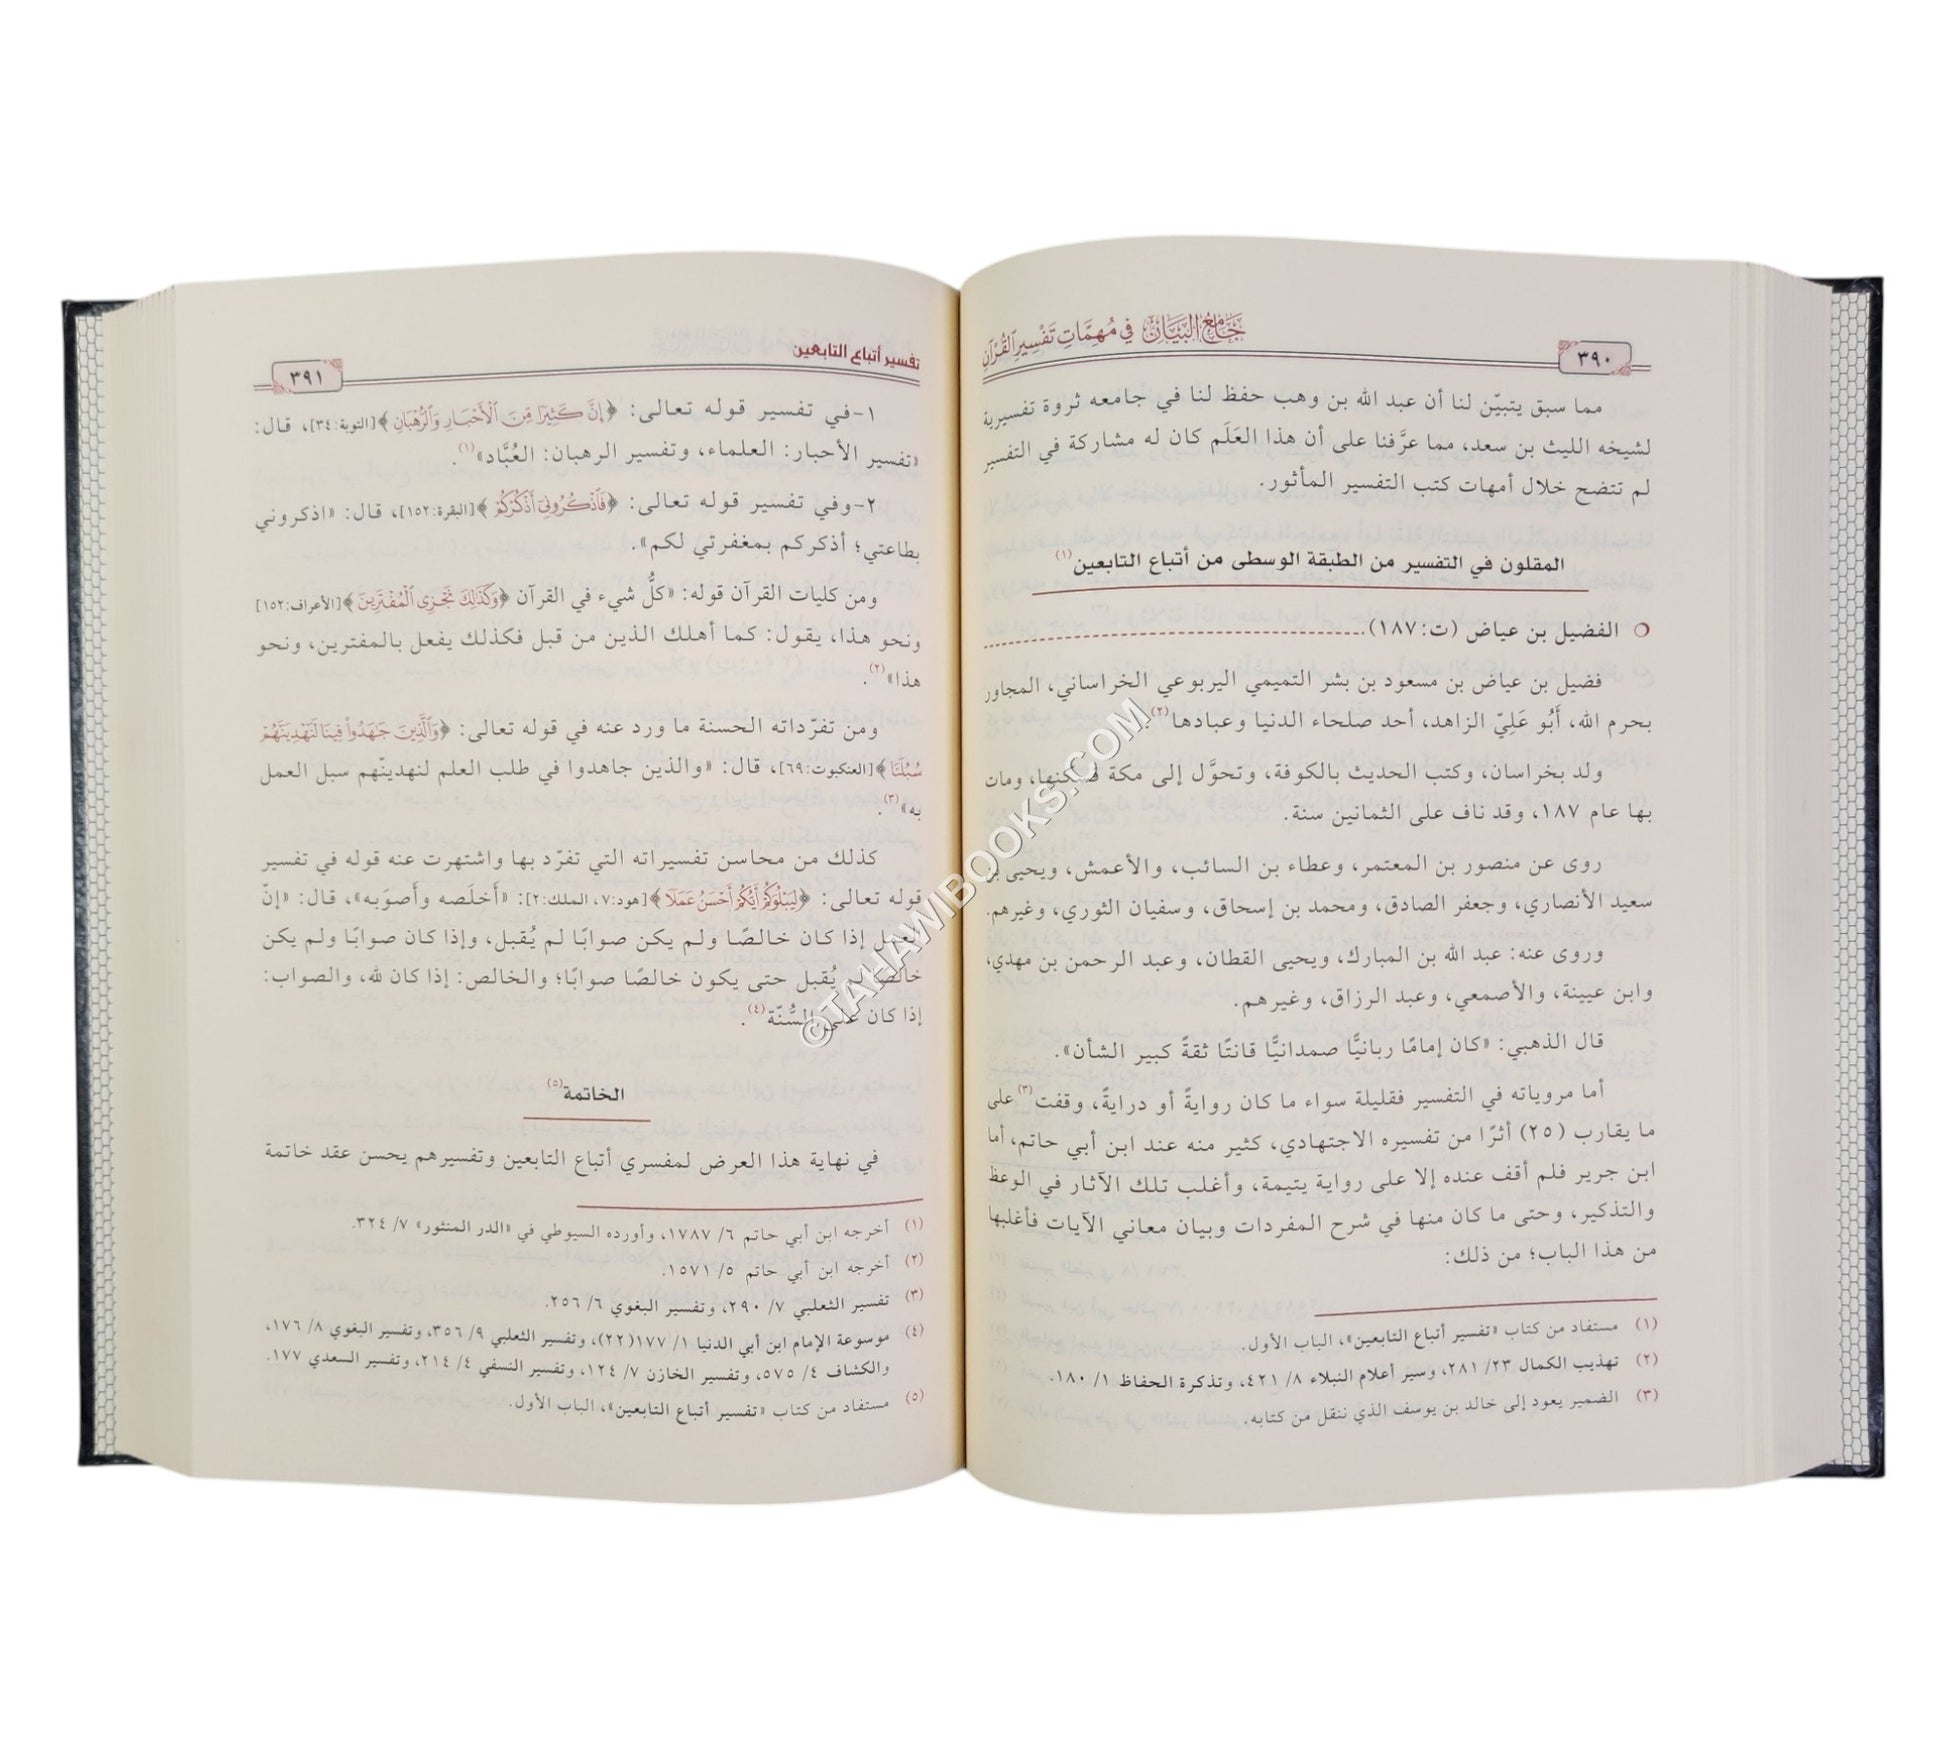 جَامِعُ البَيَان في مُهِمَّاتِ تَفْسِيرِ القُرْآن
٣٩٠
مما سبق يتبيّن لنا أن عبد الله بن وهب حفظ لنا في جامعه ثروة تفسيرية
لشيخه الليث بن سعد، مما عرَّفنا على أن هذا العَلَم كان له مشاركة في التفسير
لم تتضح خلال أمهات كتب التفسير المأثور.
المقلون في التفسير من الطبقة الوسطى من أتباع التابعين(١)
الفضيل بن عياض (ت: ١٨٧)
فضيل بن عياض بن مسعود بن بشر التميمي اليربوعي الخراساني، المجاور
بحرم الله، أَبُو عَلِيّ الزاهد، أحد صلحاء الدنيا وعبادها(٢).
ولد بخراسان، وكتب الحديث بالكوفة، وتحوَّل إلى مكة فسكنها، ومات
بها عام ١٨٧، وقد ناف على الثمانين سنة.
روى عن منصور بن المعتمر، وعطاء بن السائب، والأعمش، ويحيى بن
سعيد الأنصاري، وجعفر الصادق، ومحمد بن إسحاق، وسفيان الثوري، وغيرهم.
وروى عنه: عبد الله بن المبارك، ويحيى القطان، وعبد الرحمن بن مهدي،
وابن عيينة، والأصمعي، وعبد الرزاق، وغيرهم.
قال الذهبي: «كان إمامًا ربانيًّا صمدانيًّا قانتًا ثقةً كبير الشأن».
أما مروياته في التفسير فقليلة سواء ما كان روايةً أو درايةً، وقفت(٣) على
ما يقارب (٢٥) أثرًا من تفسيره الاجتهادي، كثير منه عند ابن أبي حاتم، أما
ابن جرير فلم أقف عنده إلا على رواية يتيمة، وأغلب تلك الآثار في الوعظ
والتذكير، وحتى ما كان منها في شرح المفردات وبيان معاني الآيات فأغلبها
من هذا الباب؛ من ذلك:
(١) مستفاد من كتاب «تفسير أتباع التابعين»، الباب الأول.
(٢) تهذيب الكمال ٢٣/ ٢٨١، وسير أعلام النبلاء ٨/ ٤٢١، وتذكرة الحفاظ ١/ ١٨٠.
(٣) الضمير يعود إلى خالد بن يوسف الذي ننقل من كتابه.
تفسير أتباع التابعين
٣٩١
١-في تفسير قوله تعالى: ﴿إِنَّ كَثِيرًا مِّنَ ٱلْأَحْبَارِ وَٱلرُّهْبَانِ﴾[التوبة:٣٤]، قال:
«تفسير الأحبار: العلماء، وتفسير الرهبان: العُبَّاد»(١).
٢-وفي تفسير قوله تعالى: ﴿فَٱذْكُرُونِىٓ أَذْكُرْكُمْ﴾[البقرة:١٥٢]، قال: «اذكروني
بطاعتي؛ أذكركم بمغفرتي لكم».
ومن كليات القرآن قوله: «كلُّ شيء في القرآن ﴿وَكَذَٰلِكَ نَجْزِى ٱلْمُفْتَرِينَ﴾[الأعراف:١٥٢]
ونحو هذا، يقول: كما أهلك الذين من قبل فكذلك يفعل بالمفترين، ونحو
هذا»(٢).
ومن تفرّداته الحسنة ما ورد عنه في قوله تعالى: ﴿وَٱلَّذِينَ جَٰهَدُوا۟ فِينَا لَنَهْدِيَنَّهُمْ
سُبُلَنَا﴾[العنكبوت:٦٩]، قال: «والذين جاهدوا في طلب العلم لنهدينّهم سبل العمل
به»(٣).
كذلك من محاسن تفسيراته التي تفرّد بها واشتهرت عنه قوله في تفسير
قوله تعالى: ﴿لِيَبْلُوَكُمْ أَيُّكُمْ أَحْسَنُ عَمَلًا﴾[هود:٧، الملك:٢]: «أخلَصه وأصوَبه»، قال: «إنّ
العمل إذا كان خالصًا ولم يكن صوابًا لم يُقبل، وإذا كان صوابًا ولم يكن
خالصًا لم يُقبل حتى يكون خالصًا صوابًا؛ والخالص: إذا كان لله، والصواب:
إذا كان على السُّنّة(٤).
الخاتمة(٥)
في نهاية هذا العرض لمفسري أتباع التابعين وتفسيرهم يحسن عقد خاتمة
(١) أخرجه ابن أبي حاتم ٦/ ١٧٨٧، وأورده السيوطي في «الدر المنثور» ٧/ ٣٢٤.
(٢) أخرجه ابن أبي حاتم ٥/ ١٥٧١.
(٣) تفسير الثعلبي ٧/ ٢٩٠، وتفسير البغوي ٦/ ٢٥٦.
(٤) موسوعة الإمام ابن أبي الدنيا ١/ ١٧٧(٢٢)، وتفسير الثعلبي ٩/ ٣٥٦، وتفسير البغوي ٨/ ١٧٦،
والكشاف ٤/ ٥٧٥، وتفسير الخازن ٧/ ١٢٤، وتفسير النسفي ٤/ ٢١٤، وتفسير السعدي ١٧٧.
(٥) مستفاد من كتاب «تفسير أتباع التابعين»، الباب الأول.
©TAHAWIBOOKS.COM